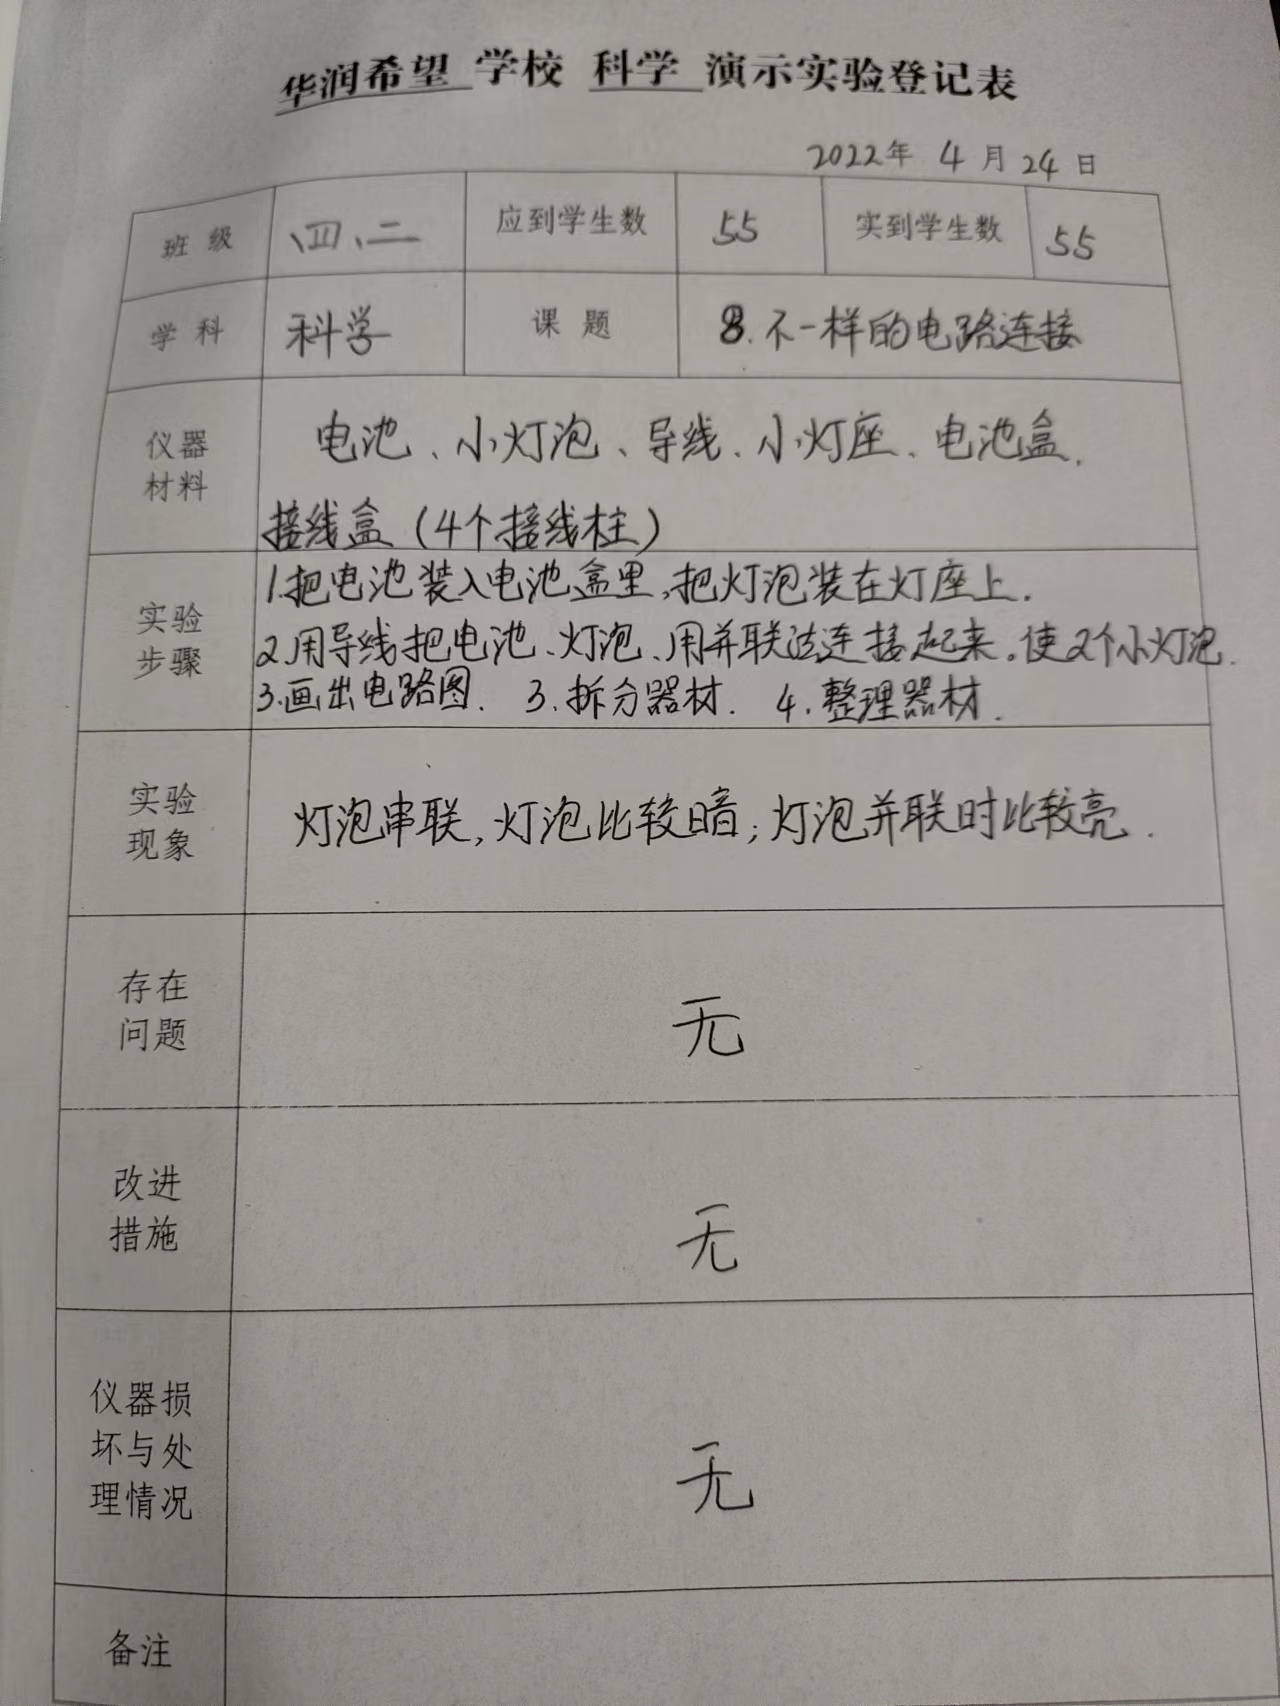 华润希望 学校 科学 演示实验登记表
2022年 4月24日
班级 四、二 应到学生数 55 实到学生数 55
学科 科学 课题 8.不一样的电路连接
仪器
材料
电池、小灯泡、导线、小灯座、电池盒、
接线盒(4个接线柱)
实验
步骤
1.把电池装入电池盒里,把灯泡装在灯座上.
2.用导线把电池、灯泡、用并联法连接起来.使2个小灯泡.
3.画出电路图. 3.拆分器材. 4.整理器材.
实验
现象
灯泡串联,灯泡比较暗;灯泡并联时比较亮.
存在
问题
无
改进
措施
无
仪器损
坏与处
理情况
无
备注